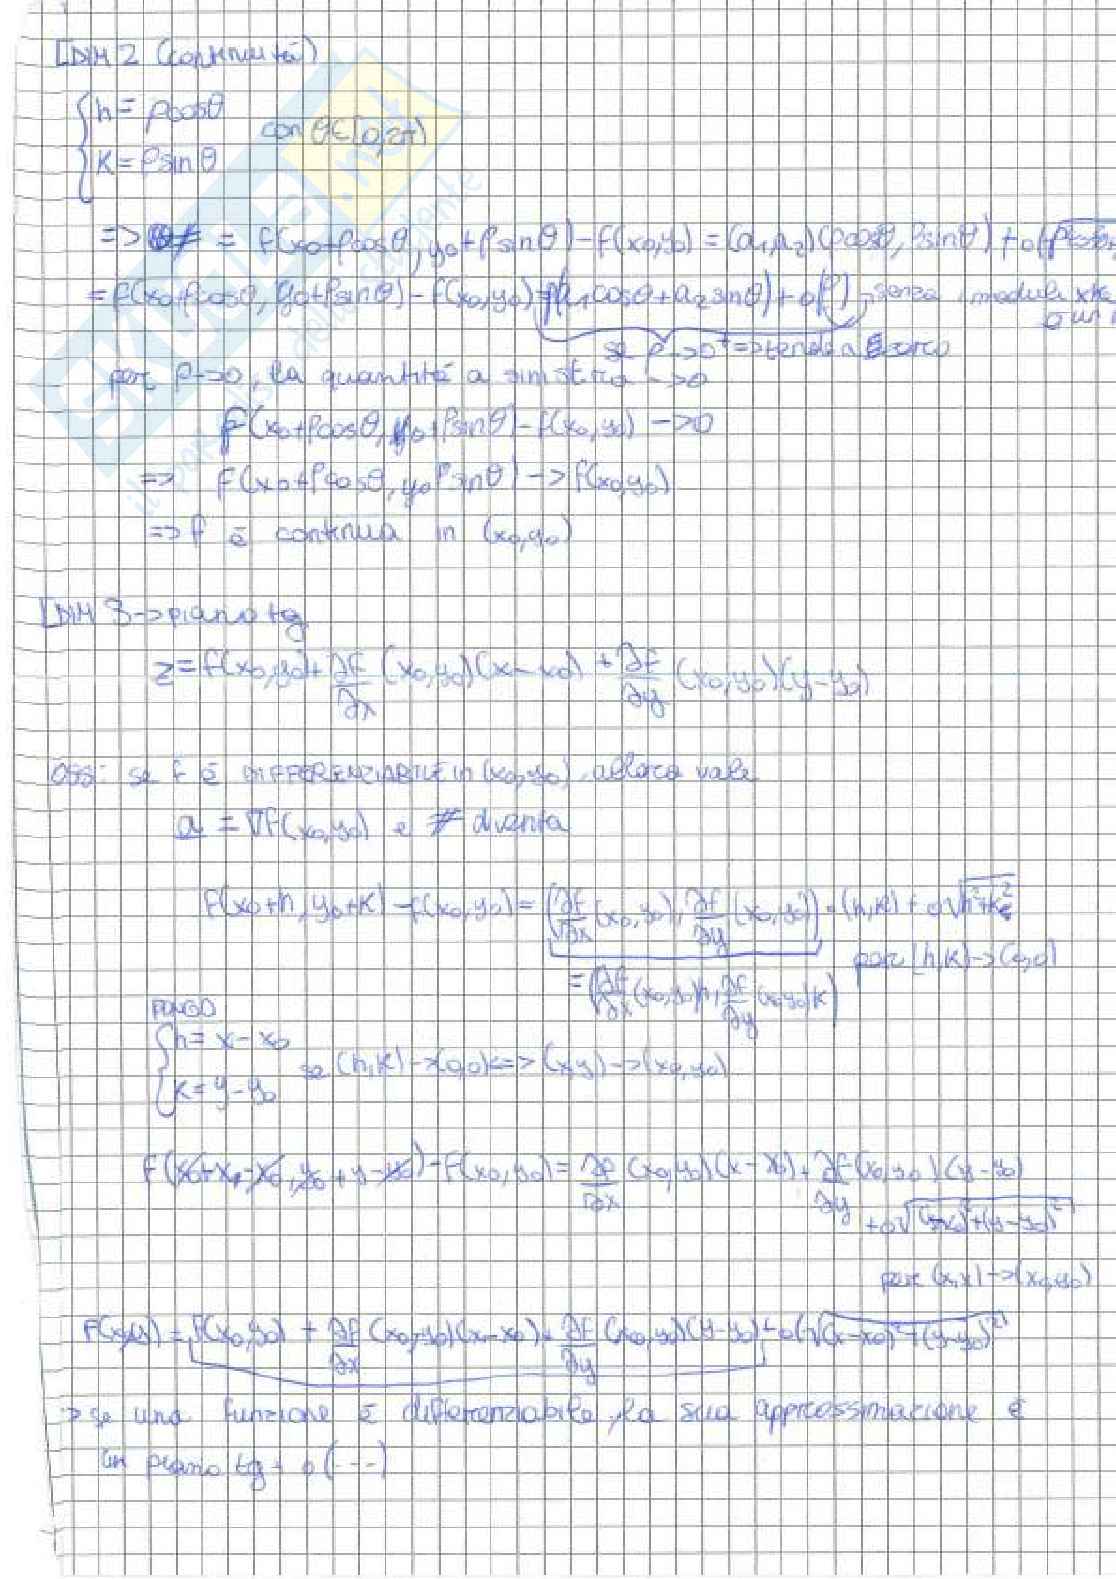 [DIM 2 (continuità)
{ h = ρcosθ
con θ∈[0,2π)
K = ρsinθ
=> # = f(x₀+ρcosθ, y₀+ρsinθ) - f(x₀,y₀) = (a₁,a₂)(ρcosθ, ρsinθ) + o(√ρ²cos²θ
= f(x₀+ρcosθ, y₀+ρsinθ) - f(x₀,y₀) = ρ(a₁cosθ+a₂sinθ) + o(ρ) senza modulo xké
se ρ->0⁺ => tende a zero
per ρ->0, la quantità a sinistra ->0
f(x₀+ρcosθ, y₀+ρsinθ) - f(x₀,y₀) ->0
=> f(x₀+ρcosθ, y₀ρsinθ) -> f(x₀,y₀)
=> f è continua in (x₀,y₀)
[DIM 3 -> piano tg
z = f(x₀,y₀) + ∂f/∂x (x₀,y₀)(x-x₀) + ∂f/∂y (x₀,y₀)(y-y₀)
OSS: se f è DIFFERENZIABILE in (x₀,y₀), allora vale
a = ∇f(x₀,y₀) e # diventa
f(x₀+h, y₀+K) - f(x₀,y₀) = (∂f/∂x (x₀,y₀), ∂f/∂y (x₀,y₀)) · (h,K) + o√h²+K²
per (h,K)->(0,0)
= (∂f/∂x (x₀,y₀)h, ∂f/∂y (x₀,y₀)K)
PONGO
{ h = x-x₀
se (h,K)->(0,0) <=> (x,y)->(x₀,y₀)
K = y-y₀
f(x₀+x-x₀, y₀+y-y₀) - f(x₀,y₀) = ∂f/∂x (x₀,y₀)(x-x₀) + ∂f/∂y (x₀,y₀)(y-y₀)
+ o√(x-x₀)²+(y-y₀)²
per (x,y)->(x₀,y₀)
f(x,y) = f(x₀,y₀) + ∂f/∂x (x₀,y₀)(x-x₀) + ∂f/∂y (x₀,y₀)(y-y₀) + o(√(x-x₀)²+(y-y₀)²)
=> se una funzione è differenziabile, la sua approssimazione è
un piano tg + o(---)
SKUOLA.net
il paradiso dello studente